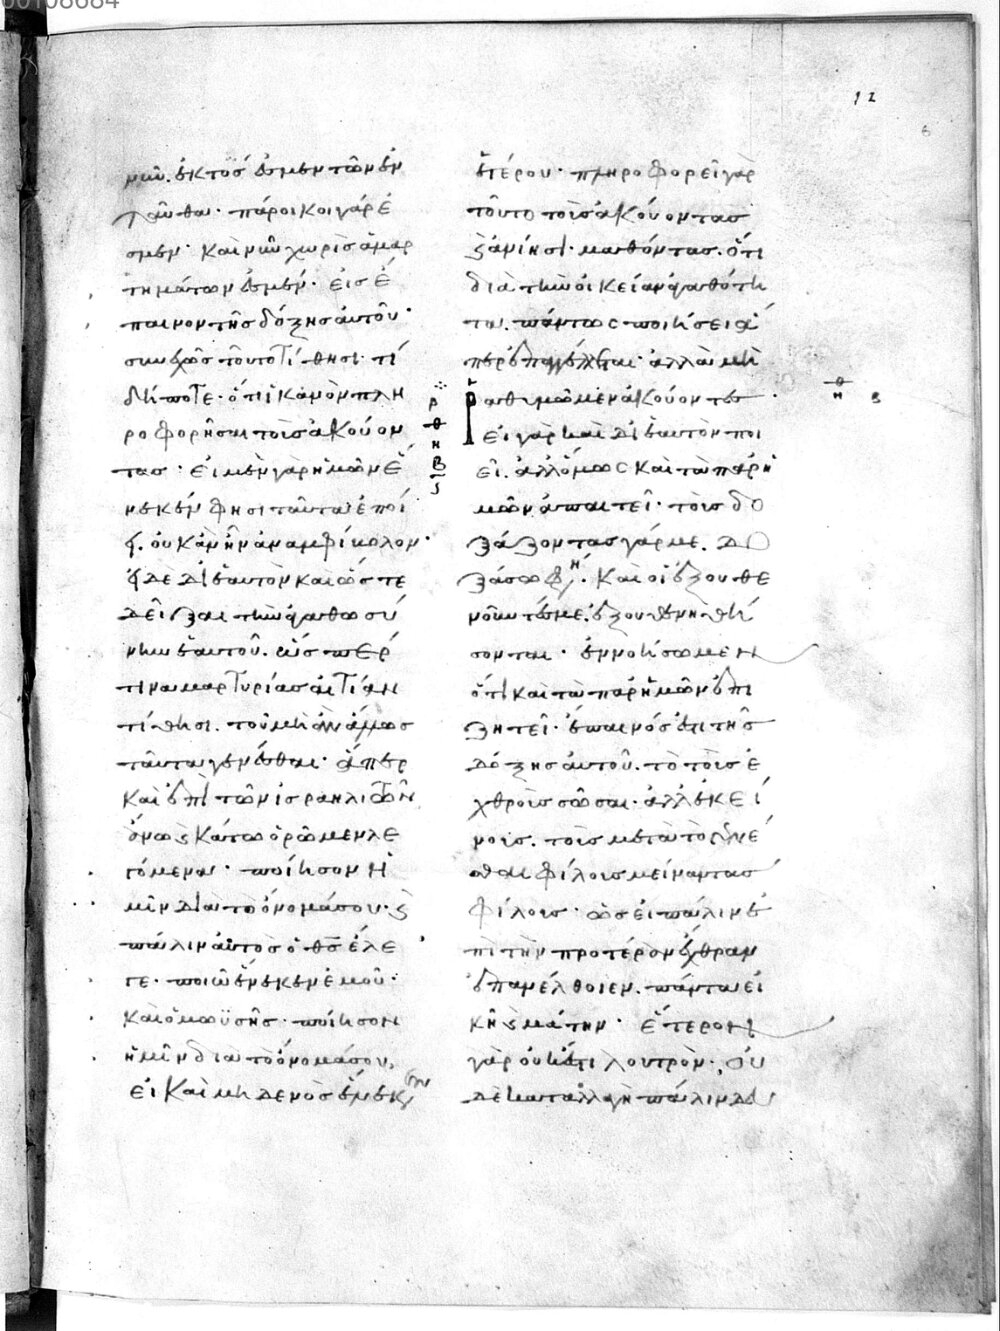 00108684
12
6
νῦν. ἐκτὸς ἐσμὲν τῶν ἐν
ταῦθα· πάροικοι γάρ ἐ
σμεν· καὶ νῦν χωρὶς ἁμαρ
τημάτων ἐσμέν· εἰς ἔ
παινον τῆς δόξης αὐτοῦ·
συνεχῶς τοῦτο τίθησι· τί
δήποτε· ὅτι ἱκανὸν πλη
ροφορῆσαι τοὺς ἀκούον
τας· εἰ μὲν γὰρ ἡμῶν ἕ
νεκέν φησι ταῦτα ἐποί
ει. οὐκ ἂν ἦν ἀναμφίβολον·
εἰ δὲ δι' ἑαυτὸν καὶ ὥστε
δεῖξαι τὴν ἀγαθωσύ
νην ἑαυτοῦ. ὥσπερ
τινα μαρτυρίας αἰτίαν
τίθησι. τοῦ μὴ ἂν ἄλλως
ταῦτα γενέσθαι· ἅπερ
καὶ ἐπὶ τῶν ἰσραηλιτῶν
ὄντως κάτω ὁρῶμεν λε
γόμενα· ποίησον ἡ
μῖν διὰ τὸ ὄνομά σου· ϛ
πάλιν αὐτὸς ὁ θς ἔλε
γε· ποιῶ ἕνεκεν ἐμοῦ·
καὶ ὁ μωϋσῆς· ποίησον
ἡμῖν διὰ τὸ ὄνομά σου,
εἰ καὶ μηδενὸς ἕνεκεν
ἑτέρου· πληροφορεῖ γὰρ
τοῦτο τοὺς ἀκούοντας
ϛ ἀνίησι· μαθόντας. ὅτι
διὰ τὴν οἰκείαν ἀγαθότη
τα. πάντως ποιήσει ἅ
περ ἐπαγγέλλεται· ἀλλὰ μὴ
ῥαθυμῶμεν ἀκούοντες·
εἰ γὰρ καὶ δι' ἑαυτὸν ποι
εῖ. ἀλλ' ὅμως καὶ τὰ παρ' ἡ
μῶν ἀπαιτεῖ· τοὺς δο
ξάζοντας γάρ με. δο
ξάσω φη. καὶ οἱ ἐξουθε
νοῦντές με. ἐξουθενηθή
σονται· ἐννοήσωμεν
ὅτι καὶ τὰ παρ' ἡμῶν ἐπι
ζητεῖ· ἔπαινός ἐστι τῆς
δόξης αὐτοῦ. τὸ τοὺς ἐ
χθροὺς σῶσαι· ἀλλ' ἐκεί
νους. τοὺς μετὰ τὸ γενέ
σθαι φίλους μείναντας
φίλους· ὡς εἰ πάλιν ἐ
πὶ τὴν προτέραν ἔχθραν
ἐπανέλθοιεν. πάντα εἰ
κῆ ϛ μάτην· ἕτερον
γὰρ οὐκ ἔτι λουτρὸν. οὐ
δὲ καταλλαγὴ πάλιν δευ